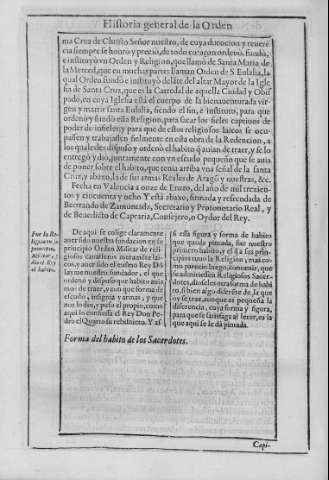 Historia general de la Orden
ma Cruz de Christo Señor nuestro, de cuya deuocion y reueré
cia siempre se honró y preció, de todo coraçon ordenó, fundó,
e instituyó vn Orden y Religion, que llamó de Santa Maria de
la Merced, que en muchas partes llaman Orden de S. Eulalia, la
qual Orden fundó e instituyó delante del altar Mayor de la Igle
sia de Santa Cruz, que es la Catredal de aquella Ciudad y Obis
pado, en cuya Iglesia está el cuerpo de la bienauenturada vir-
gen y martir santa Eulalia, siendo el fin, e instituto, para que
ordenó y fundó esta Religion, para sacar los fieles captiuos de
poder de infieles; y para que dellos religiosos laicos se ocu-
passen y trabajassen fielmente en esta obra de la Redencion, a
los quales dispuso y ordenó el habito q̃ auian de traer, y se lo
entregó y dió, juntamente con vn escudo pequeño que se auia
de poner sobre el habito, que tenia arriba vna señal de la santa
Cruz, y abaxo, la de sus armas Reales de Aragõ y nuestras, &c.
Fecha en Valencia a onze de Enero, del año de mil trezien-
tos y cincuenta y ocho Y está abaxo, firmada y refrendada de
Bertrando de Secretario y Protonotario Real, y
de Benedicto de Capraria, Consejero, o Oydor del Rey.
Fue la Re-
ligion en su
principio,
Militar, y
dió el Rey
el habito.
De aqui se colige claramente
auer sido nuestra fundacion en su
principio Orden Militar de reli-
giosos caualleros
cos, y auer sido el mesmo Rey Dõ
Iayme nuestro fundador, el que
ordenó y dispuso que habito auia-
mos de traer, y el que dió forma de
escudo, insignia y armas, y que
nos lo dió, y puso al propio, como
aqui lo confiessa el Rey Don Pe-
dro el Quarto su Y as-
si esta figura y forma de habito
que queda pintada, fue nuestro
primero habito, y el q̃ a sus prin-
cipios tuuo la Religion; mas co-
mo parecio luego, conuenir, que
se admitiessen Religiosos Sacer-
dotes, dioseles otra forma de habi
to, si bien algo diferẽte de la que
oy traẽ, aunque es pequeña la
diferencia, cuya forma y figura,
para que se satisfaga al letor, es la
que aqui se le dá pintada.
Forma del habito de los Sacerdotes.
Capi-